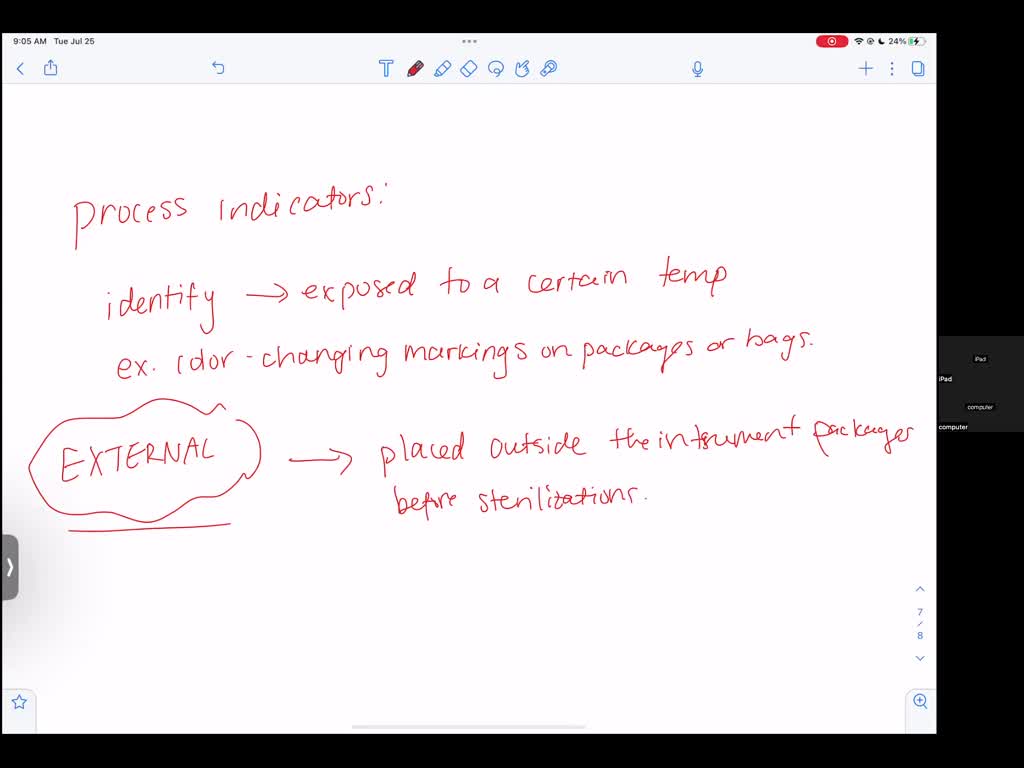 9:05 AM Tue Jul 25
24%
T
process indicators:
identify → exposed to a certain temp
ex. color-changing markings on packages or bags.
EXTERNAL → placed outside the instrument packages
before sterilizations.
iPad
iPad
computer
computer
7
/
8